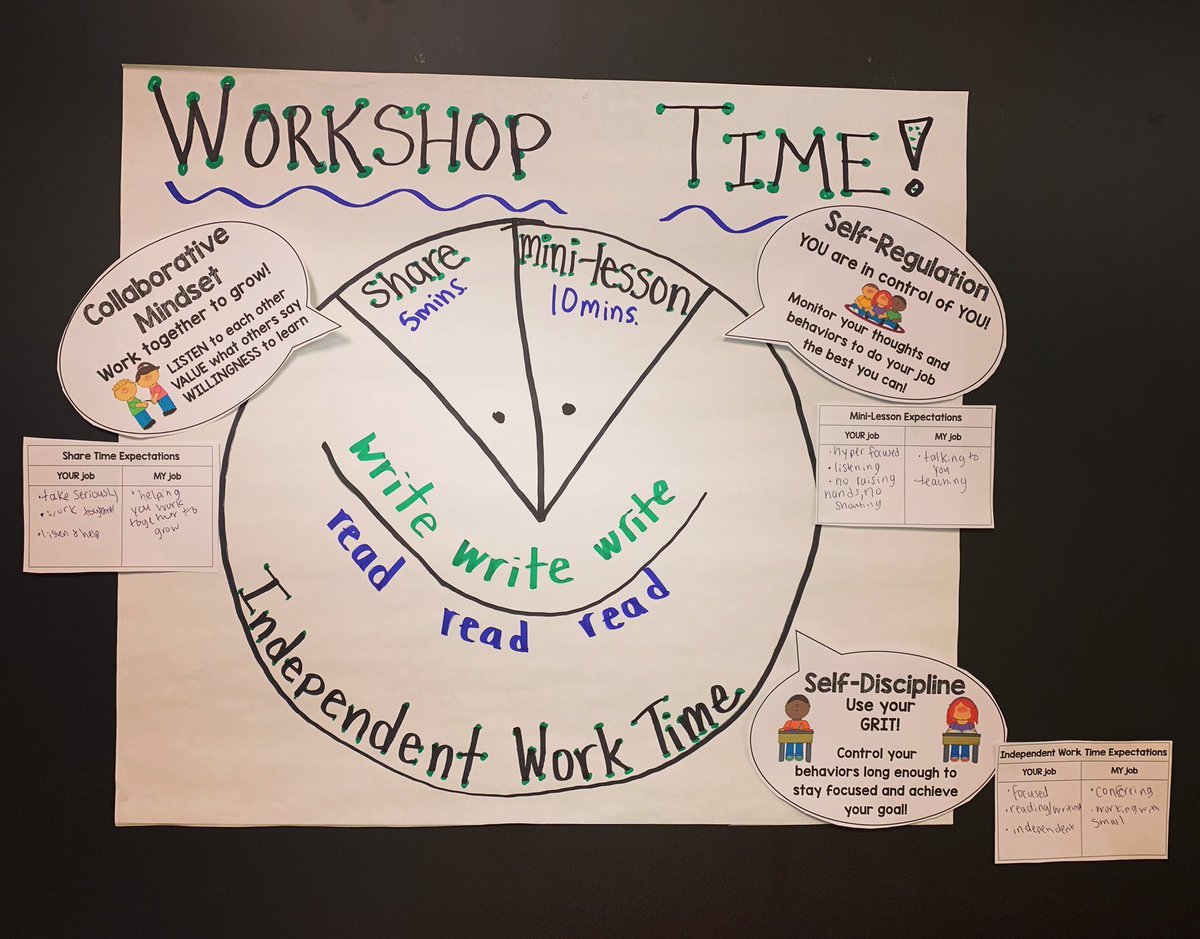 WORKSHOP TIME!
Collaborative
Mindset
Work together to grow!
LISTEN to each other
VALUE what others say
WILLINGNESS to learn
share
5mins.
mini-lesson
10mins.
Self-Regulation
YOU are in control of YOU!
Monitor your thoughts and
behaviors to do your job
the best you can!
Share Time Expectations
YOUR job
•take seriously
•work
•listen
MY job
•helping
you work
together to
grow
Mini-Lesson Expectations
YOUR job
•hyper focused
•listening
•no raising
hands, no
shouting
MY job
•talking to
you
•teaching
write write write
read read read
Independent Work Time
Self-Discipline
Use your
GRIT!
Control your
behaviors long enough to
stay focused and achieve
your goal!
Independent Work Time Expectations
YOUR job
•focused
•reading/writing
•independent
MY job
•conferring
•working with
small